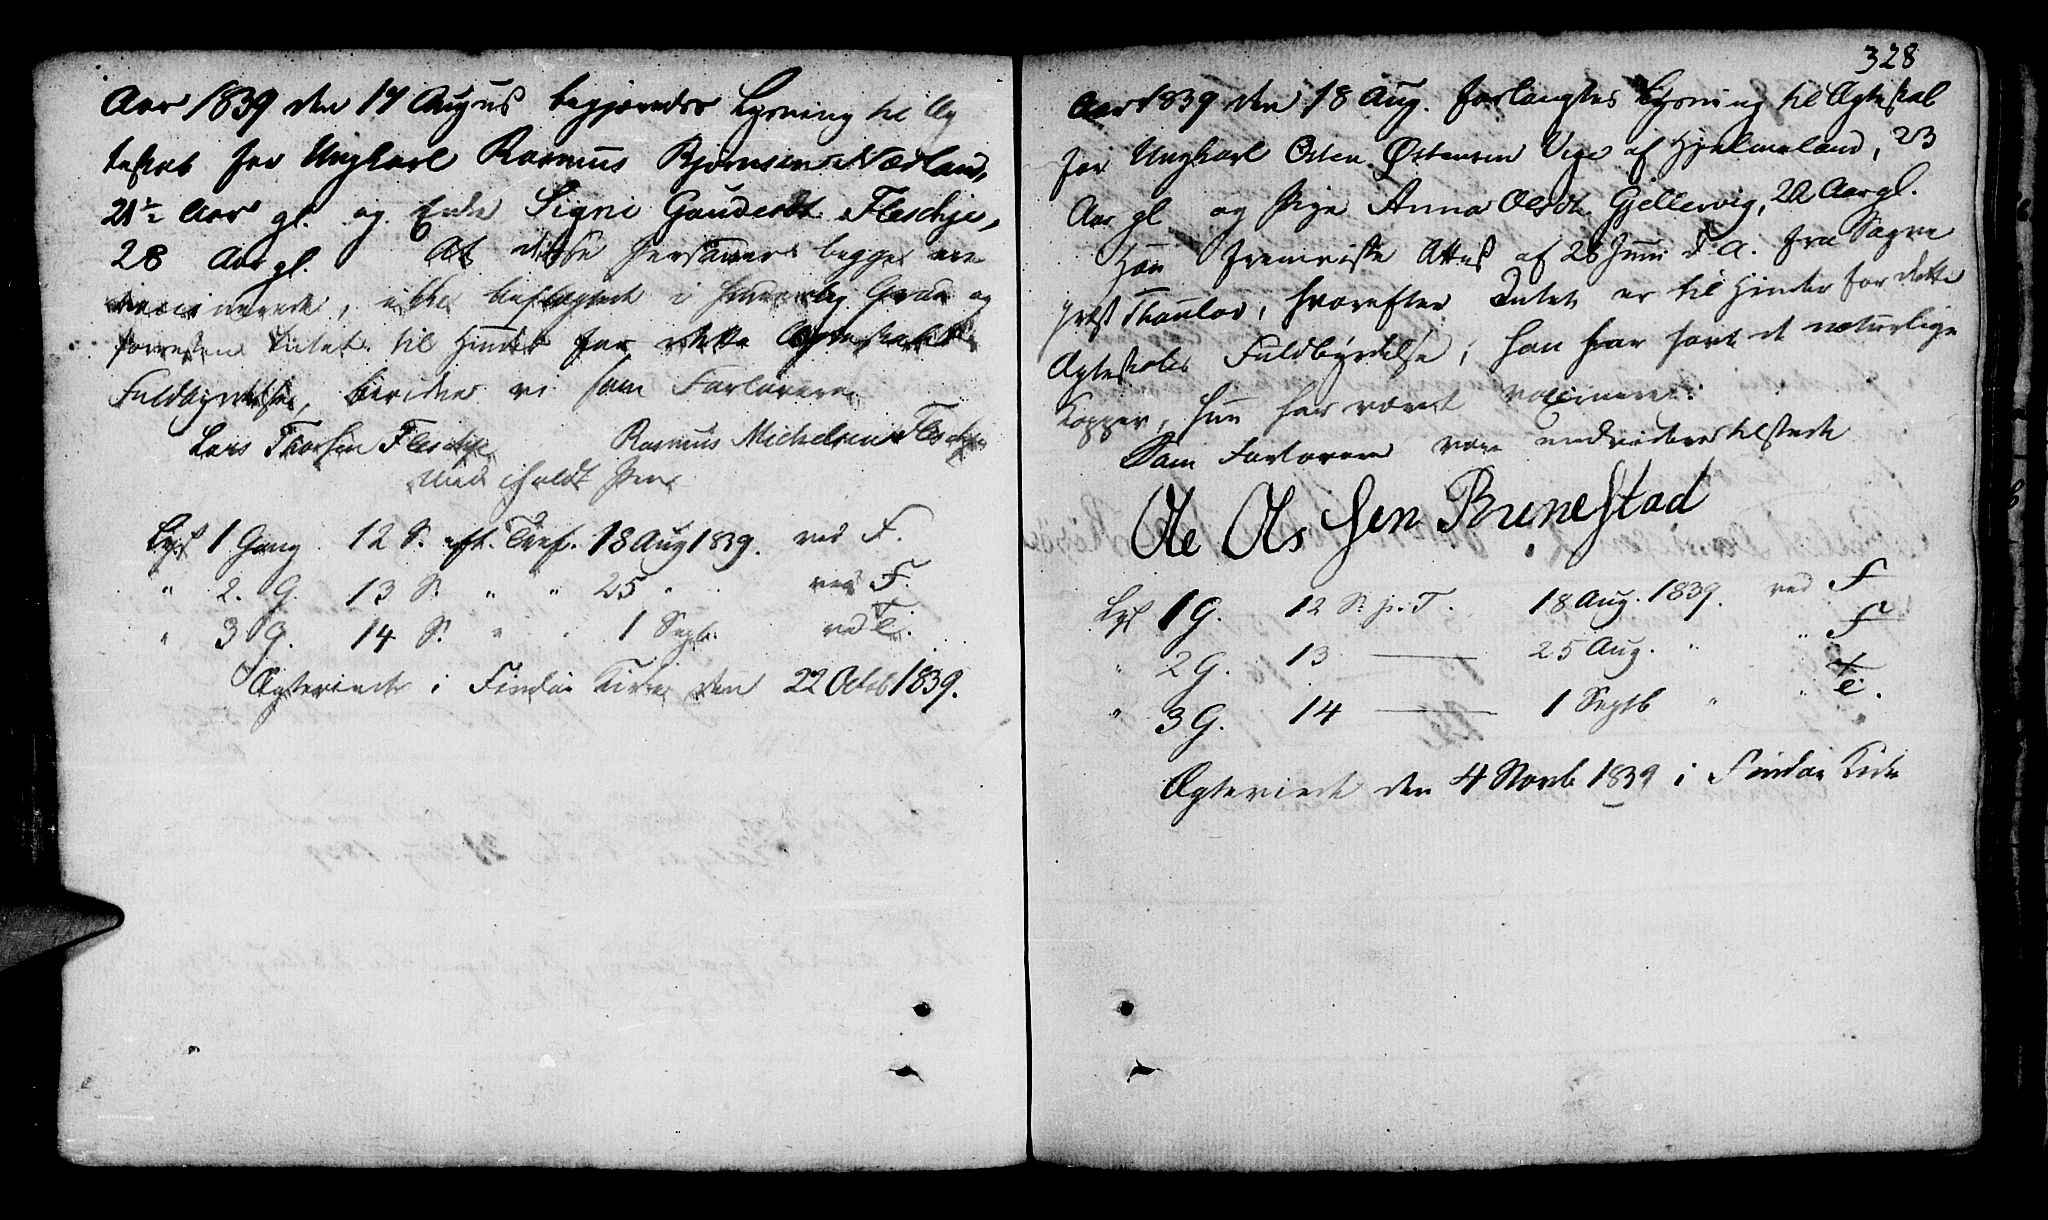 Aar 1839 den 17 Augus begjæredes Lysning til Æg
teskab for Ungkarl Rasmus Bjørnsen Nædland,
21½ Aar gl. og Enke Signe Gaudesdt. Fleskje,
28 Aar gl. At disse Personer begge ere
vaccinerede, ikke beslægtede i forbuden Grad og
forresten Intet til Hinder for dette Ægteskabets
Fuldbyrdelse, bevidne vi som Forlovere
Lars Thorsen Fleskje Rasmus Michelsen Fleskje
med holdt Pen
Lyst 1 Gang 12 S. eft. Tref. 18 Aug 1839. ved F.
" 2. G. 13 S. " " 25 " ved F.
" 3 G. 14 S. " " 1 Septb. ved T.
Ægteviede i Findøe Kirke den 22 Octob 1839.
328
Aar 1839 den 18 Aug. forlangtes Lysning til Ægteskab
for Ungkarl Osten Østensen Vige af Hjelmeland, 23
Aar gl og Pige Anna Olsdt. Gjellervig, 22 Aar gl.
Han fremviste Attest af 28 Juni d. A. fra Sogne
præst Thaulov, hvorefter Intet er til Hinder for dette
Ægteskabs Fuldbyrdelse; han har havt de naturlige
Kopper, hun har været vaccineret.
Som Forlovere vare undertegnede tilstede
Ole Ols Sen Bunestad
Lyst 1 G. 12 S. p. T. 18 Aug. 1839. ved F
" 2 G. 13 — 25 Aug. " " F
" 3 G. 14 — 1 Septb " "
Ægteviede den 4 Novb 1839 i Findøe Kirke